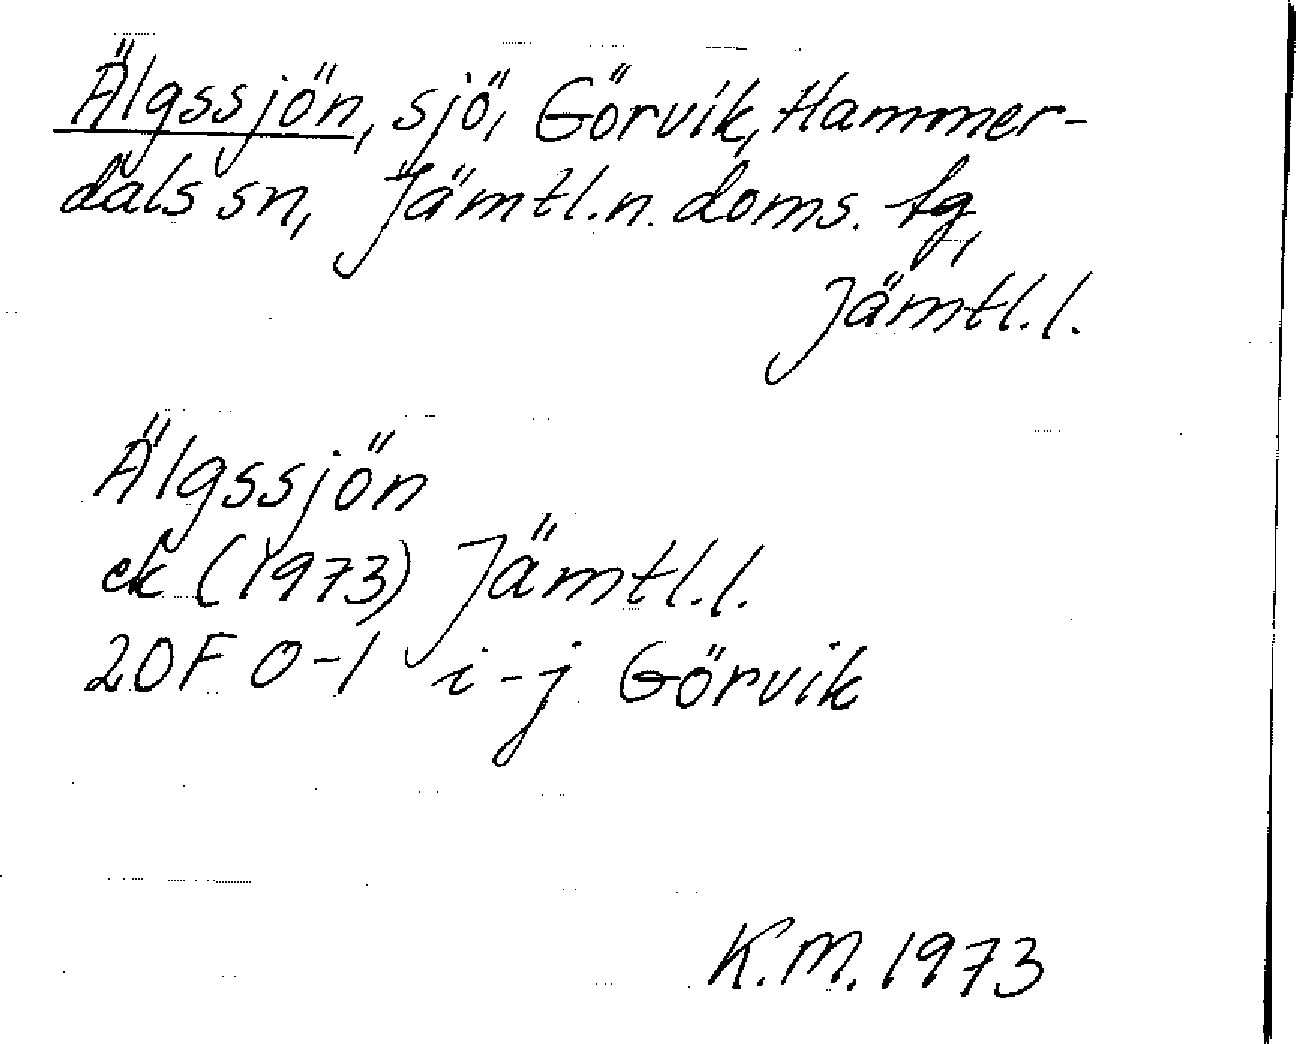 Älgssjön, sjö, Görvik, Hammer-
dals sn, Jämtl. n. doms. tg,
Jämtl. l.
Älgssjön
ek (1973) Jämtl. l.
20F 0-1 i-j Görvik
K.M. 1973